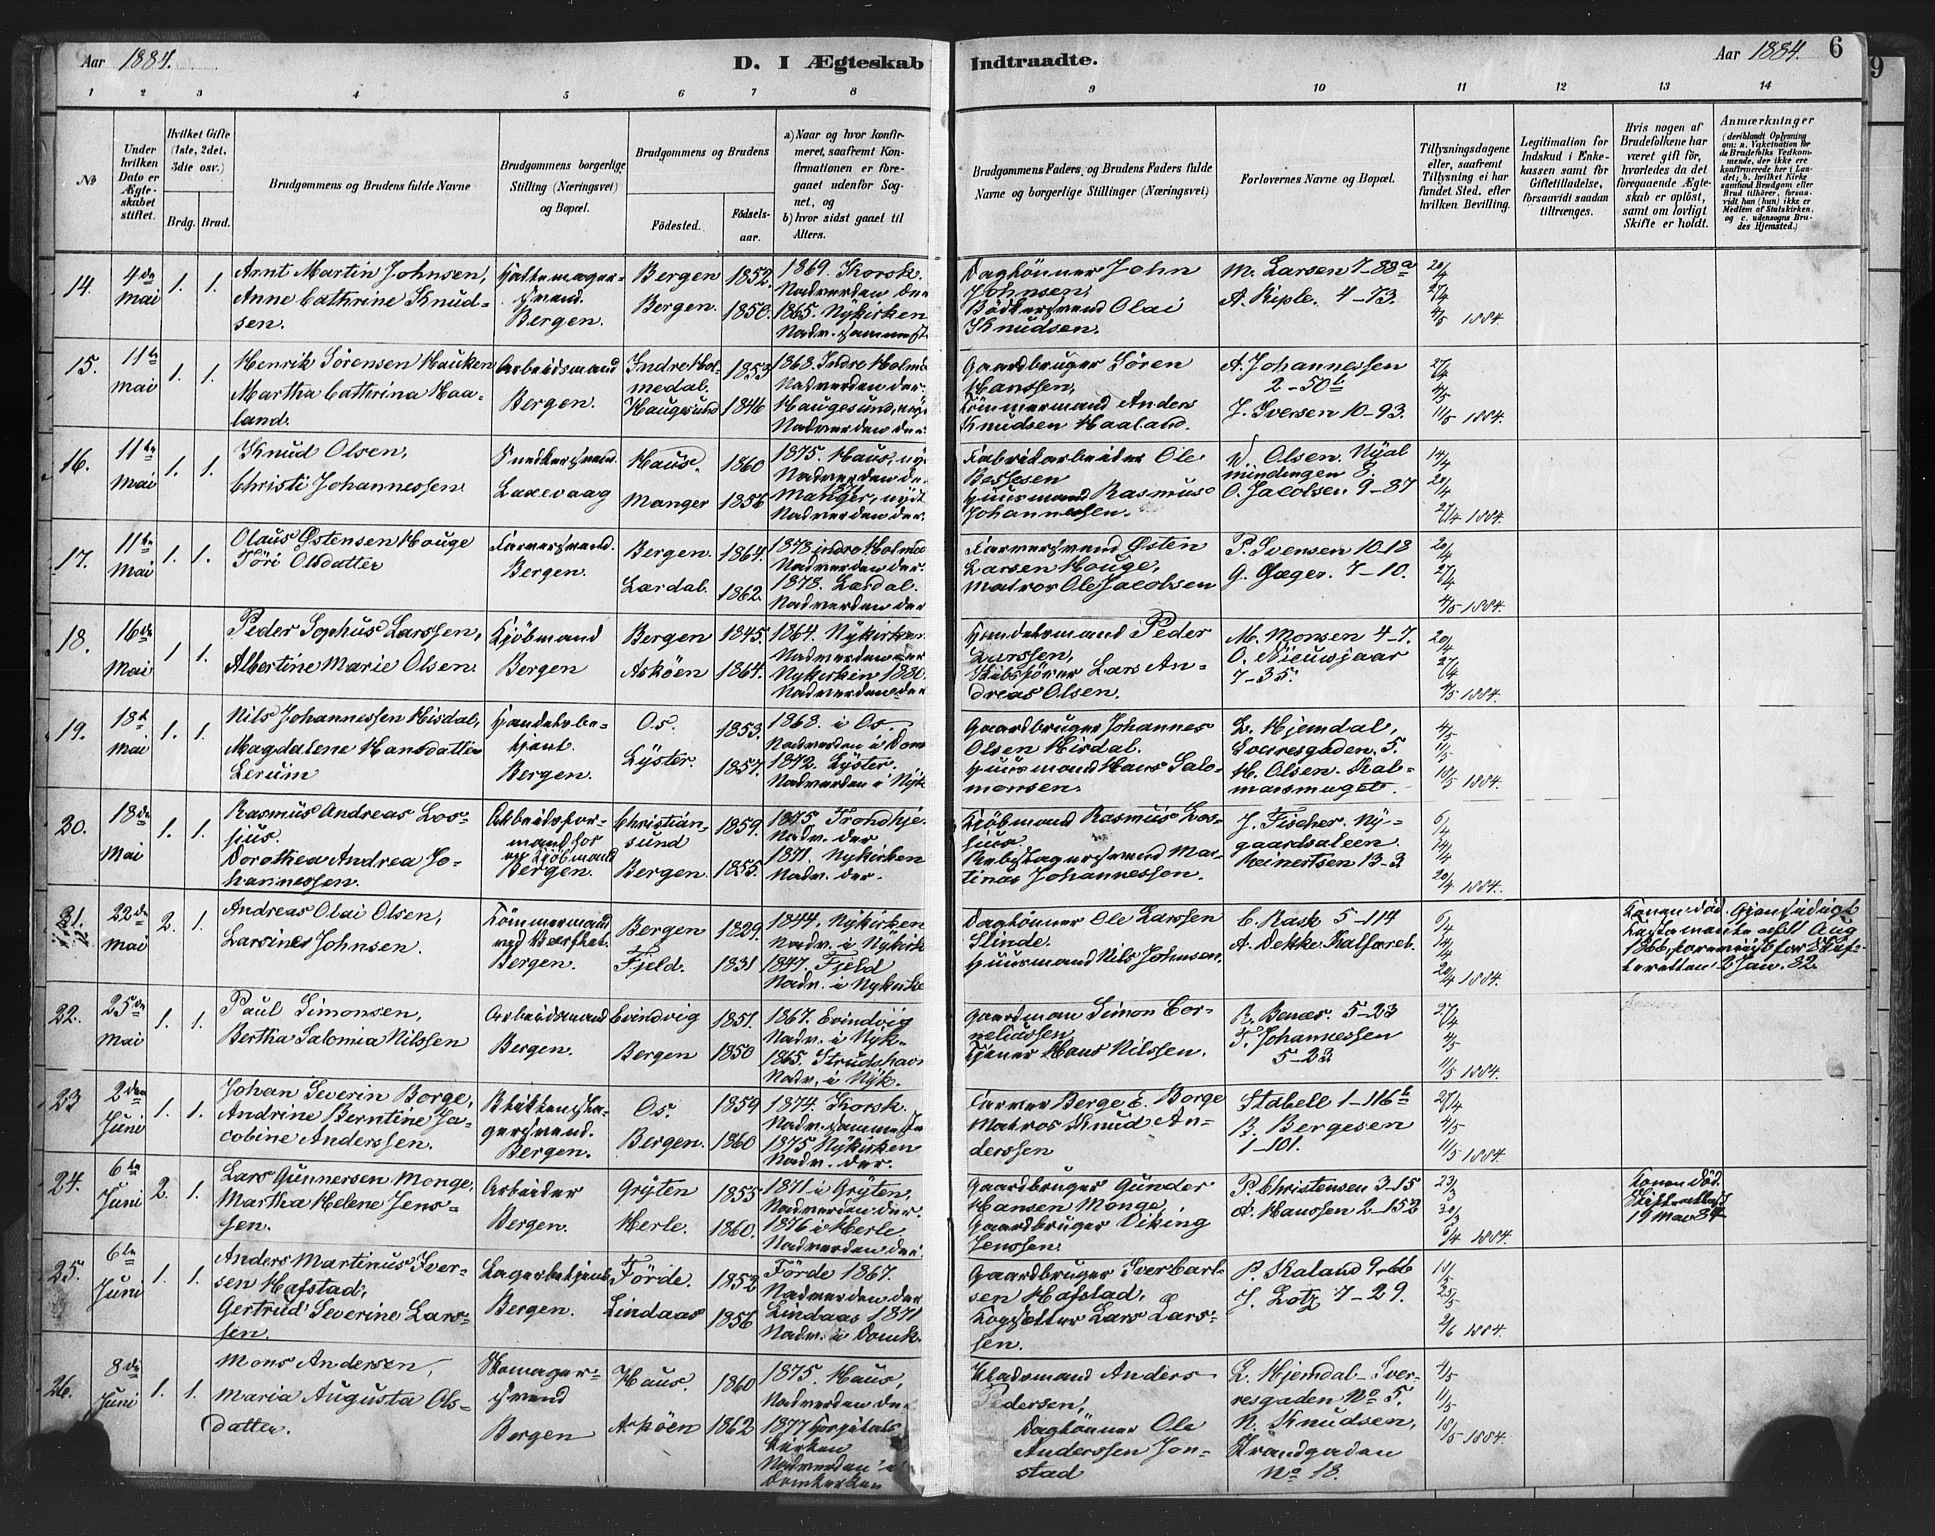 Aar 1884.
D. I Ægteskab Indtraadte.
Aar 1884. 6
9
1 2 3 4 5 6 7 8 9 10 11 12 13 14
No
Under hvilken Dato er Ægteskabet stiftet.
Hvilket Gifte (1ste, 2det, 3die osv.)
Brdg. Brud.
Brudgommens og Brudens fulde Navne
Brudgommens borgerlige Stilling (Næringsvei) og Bopæl.
Brudgommens og Brudens
Fødested. Fødselsaar.
a) Naar og hvor konfirmeret, saafremt Konfirmationen er foregaaet udenfor Sognet, og
b) hvor sidst gaaet til Alters.
Brudgommens Faders, og Brudens Faders fulde Navne og borgerlige Stillinger (Næringsvei)
Forlovernes Navne og Bopæl.
Tillysningsdagene eller, saafremt Tillysning ei har fundet Sted, efter hvilken Bevilling.
Legitimation for Indskud i Enkekassen samt for Giftetilladelse, forsaavidt saadan tiltrænges.
Hvis nogen af Brudefolkene har været gift før, hvorledes da det foregaaende Ægteskab er opløst, samt om lovligt Skifte er holdt.
Anmærkninger (deriblandt Oplysning om: a. Vaccination for de Brudefolks Vedkommende, der ikke ere konfirmerede her i Landet; b. hvilket Kirkesamfund Brudgom eller Brud tilhører, forsaavidt han (hun) ikke er Medlem af Statskirken, og c. udensogns Brudes Hjemsted.)
14. 4de Mai 1. 1.
Arnt Martin Johnsen,
Anne Cathrine Knudsen.
Hattemagersvend.
Bergen.
Bergen 1852.
Bergen. 1850.
1869. Korsk.
Nadverden der
1865. Nykirken
Nadv. sammest.
Daglönner John Johnsen,
Bödkersvend Olai Knudsen.
M. Larsen 7-88a
A. Riple. 4-73.
20/4
27/4
4/5 1884.
15. 11te Mai 1. 1.
Henrik Sörensen Hauken
Martha Cathrina Haaland.
Arbeidsmand
Bergen.
Indre Holmedal. 1853
Haugesund 1846
1868. Indre Holme
Nadverden der.
Haugesund,
Nadverden der.
Gaardbruger Sören Hanssen,
Tömmermand Anders Knudsen Haaland.
A. Johannessen
2-50b
J. Iversen 10-93.
27/4
4/5
11/5 1884.
16. 11te Mai 1. 1.
Knud Olsen,
Christi Johannessen
Snedkersvend.
Laxevaag
Haus. 1860
Manger 1856
1875. Haus,
Nadverden de
Manger, nydt
Nadverden der.
Fabrikarbeider Ole
Huusmand Rasmus Johannessen.
O. Olsen. Nyalmindingen 8.
O. Jacobsen 9-87
14/4
20/4
27/4 1884.
17. 11te Mai 1. 1.
Olaus Østensen Houge
Töri Olsdatter
Farversvend.
Bergen.
Bergen. 1864.
Lærdal. 1862.
1878. indre Holmed
Nadverden der.
1878. Lærdal.
Nadverden der
Farversvend Østen Larsen Houge,
Matros Ole Jacobsen
P. Svensen 10-18
G. Jæger. 7-10.
20/4
27/4
4/5 1884.
18. 16de Mai 1 1.
Peder Sophus Larssen,
Albertine Marie Olsen.
Kjöbmand
Bergen
Bergen 1845.
Asköen 1864.
1864. Nykirken
Nadverden der
Nykirken 1880.
Nadverden der
Handelsmand Peder Larssen,
Skibsförer Lars Andreas Olsen.
M. Monsen 4-7.
O. Nieuwjaar
7-35.
20/4
27/4
4/5 1884.
19. 18de Mai 1. 1.
Nils Johannessen Hisdal,
Magdalene Hansdatter Lerum
Handelsbetjent.
Bergen.
Os. 1853.
Lyster. 1857.
1868. i Os
Nadverden i Dom
1872. Lyster.
Nadverden i Nyk
Gaardbruger Johannes Olsen Hisdal.
Huusmand Hans Salomonsen.
L. Hjemdal,
Sverresgaden. 5.
H. Olsen. Kalmarsmuget.
4/5
11/5
18/5 1884.
20. 18de Mai 1. 1.
Rasmus Andreas Lossius.
Dorothea Andrea Johannessen.
Arbeidsformand for en Kjöbmand
Bergen.
Christiansund 1859.
Bergen. 1855.
1875 Trondhje
Nadv. der
1871. Nykirken
Nadv. der.
Kjöbmand Rasmus Lossius.
Rebslagersvend Martinus Johannessen.
J. Fischer. Nygaardsaleen.
Reinertsen 13-3
6/4
14/4
20/4 1884.
21. 22de Mai 2. 1.
Andreas Olai Olsen,
Larsine Johnsen.
Tömmermand
Bergen.
Bergen 1829.
Fjeld. 1831
1844. Nykirken
Nadv. i Nykirk
1847. Fjeld
Nadv. i Nykirke
Daglönner Ole Larssen Slinde.
Huusmand Nils Johnsen.
C. Rask 5-114
A. Dekke. Kalfaret.
6/4
14/4
20/4 1884.
Konen död. Gjensidigt Testamente
22. 25de Mai 1. 1.
Paul Simonsen,
Bertha Salomia Nilssen
Arbeidsmand
Bergen.
Evindvig 1851.
Bergen 1850
1867. Evindvig
Nadv. i Nyk.
1865. Strudshavn
Nadv. i Nyk.
Gaardman Simon Corneliussen
Tjener Hans Nilssen.
R. Benæs. 5-23
T. Johannessen
5-23
27/4
4/5
11/5 1884.
23 2den Juni 1. 1.
Johan Severin Borge,
Andrine Berntine Jacobine Anderssen.
Blikkenslagersvend.
Bergen.
Os. 1859
Bergen. 1860
1874. Korsk.
Nadv. sammeste
1875 Nykirken
Nadv. der.
Farver Berge E. Borge
Matros Knud Anderssen
Stabell 1-116b
B. Bergesen
1-101.
27/4
4/5
11/5 1884.
24. 6te Juni 2. 1.
Lars Gunnersen Monge,
Martha Helene Jenssen.
Arbeider
Bergen.
Gryten 1855
Herle. 1860.
1871 i Gryten,
Nadverden der.
1876 i Herle
Nadverden der.
Gaardbruger Gunder Hansen Monge,
Gaardbruger Viking Jenssen.
P. Christensen 3-15
A. Hanssen 2-152
23/3
30/3
6/4 1884.
Konen död.
Skifteattest
19 Mai 84
25. 6te Juni 1. 1.
Anders Martinus Iversen Hafstad,
Gertrud Severine Larssen.
Lagerbetjent
Bergen.
Förde. 1852
Lindaas 1856
Förde 1867.
Nadverden der
Lindaas 1871
Nadv. i Domk.
Gaardbruger Iver Carlsen Hafstad,
Lars Larssen.
P. Kaland 9-66
J. Lotz 7-29.
18/5
25/5
2/6 1884.
26. 8de Juni 1. 1.
Mons Andersen,
Maria Augusta Olsdatter.
Skomagersvend
Bergen
Haus. 1860
Asköen 1862
1875. Haus,
Nadverden der
1877 Hospitalskirken
Nadverden i
Domkirken
Anders Pedersen,
Daglönner Ole Anderssen Jonstad
L. Hjemdal - Sverresgaden No 5.
N. Knudsen,
Strandgaden
No 18.
4/5
11/5
18/5 1884.